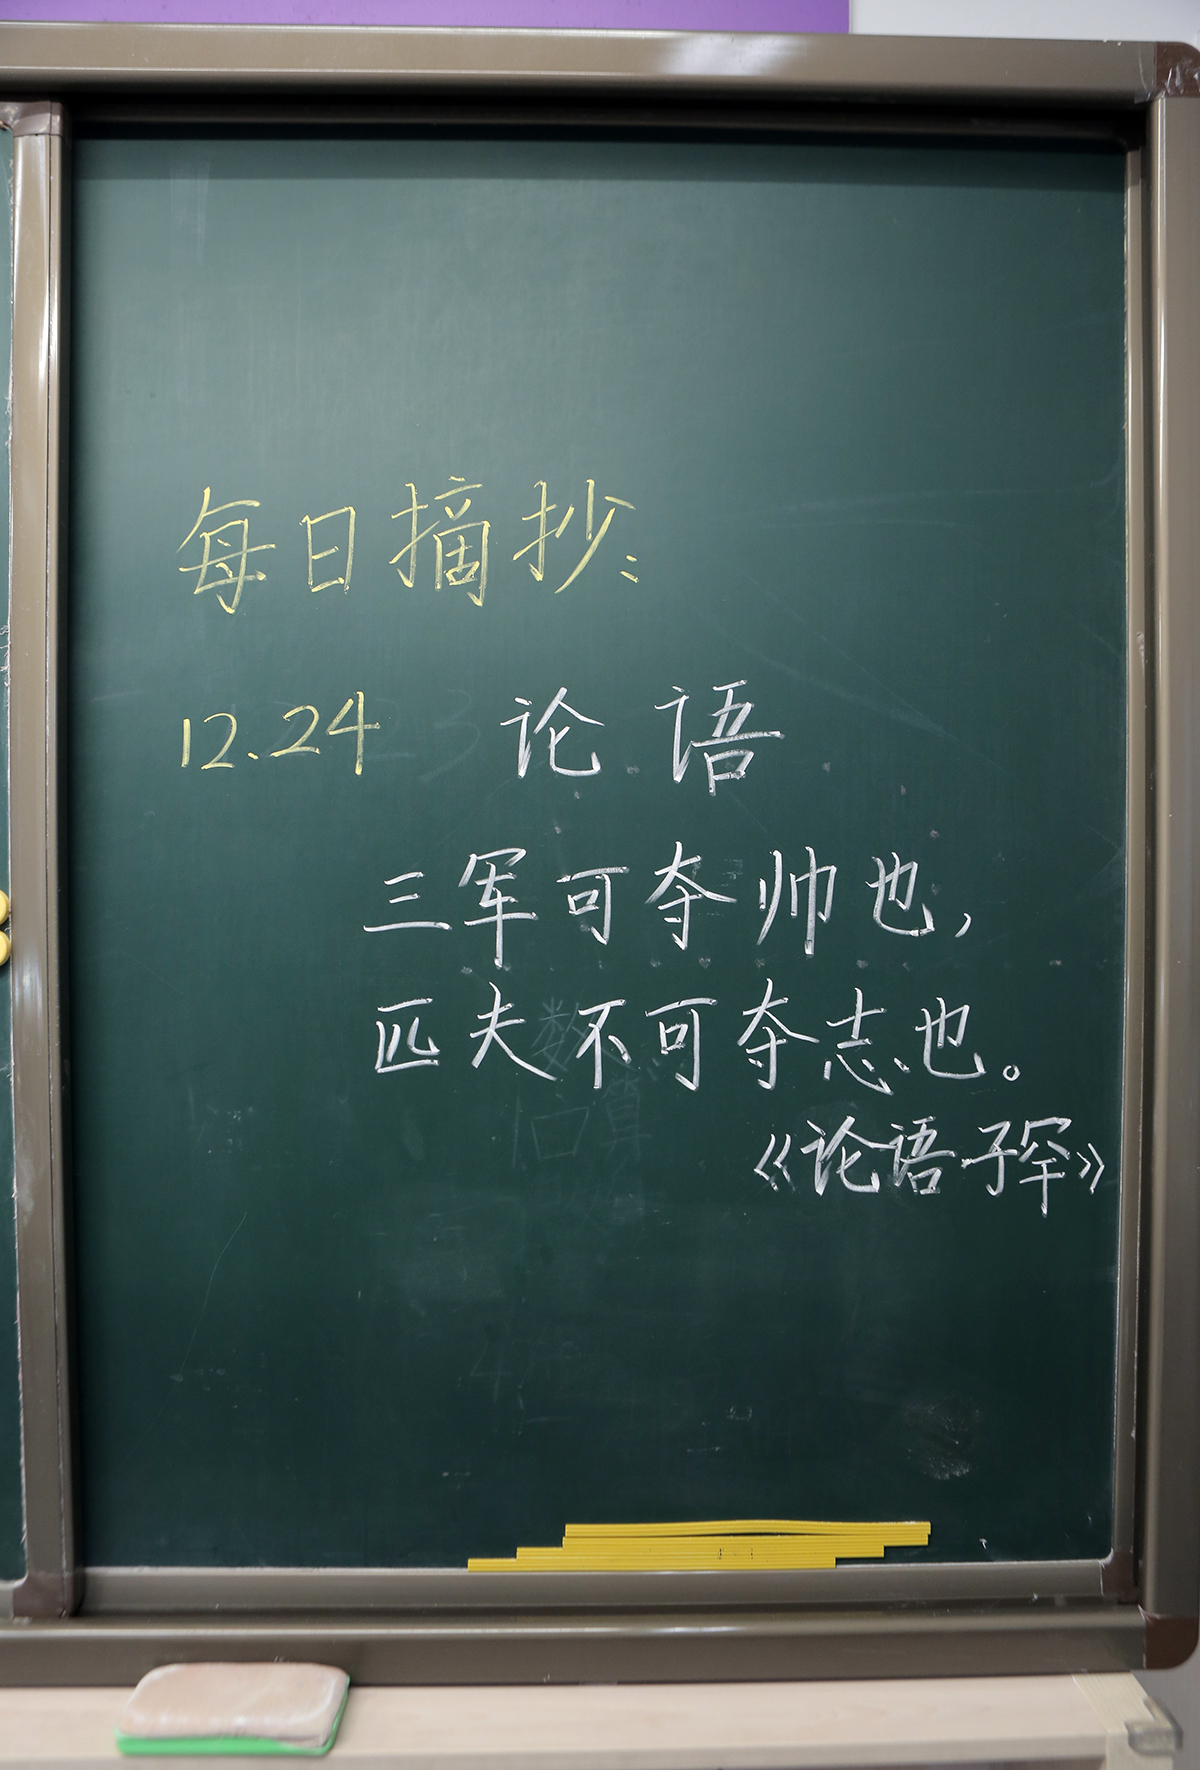 每日摘抄:
12.24 论语
三军可夺帅也,
匹夫不可夺志也。
《论语·子罕》